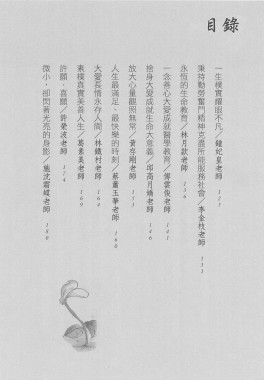 目錄
一生樸實耀眼不凡／鐘妃皇老師 123
秉持勤勞奮鬥精神克盡所能服務社會／李金枝老師 131
永恆的生命教育／林月款老師 136
一念善心大愛成就醫學教育／傅雲俊老師 141
捨身大愛成就生命大意義／邱高月嬌老師 146
放大心量觀照無常／黃存剛老師 153
人生最滿足、最快樂的時刻／蔡蕭玉華老師 158
大愛長情永存人間／林鐵村老師 164
素樸真實美善人生／葛素美老師 169
許願，喜願／許榮波老師 174
微小，卻閃著光亮的身影／施沈霜蝶老師 180